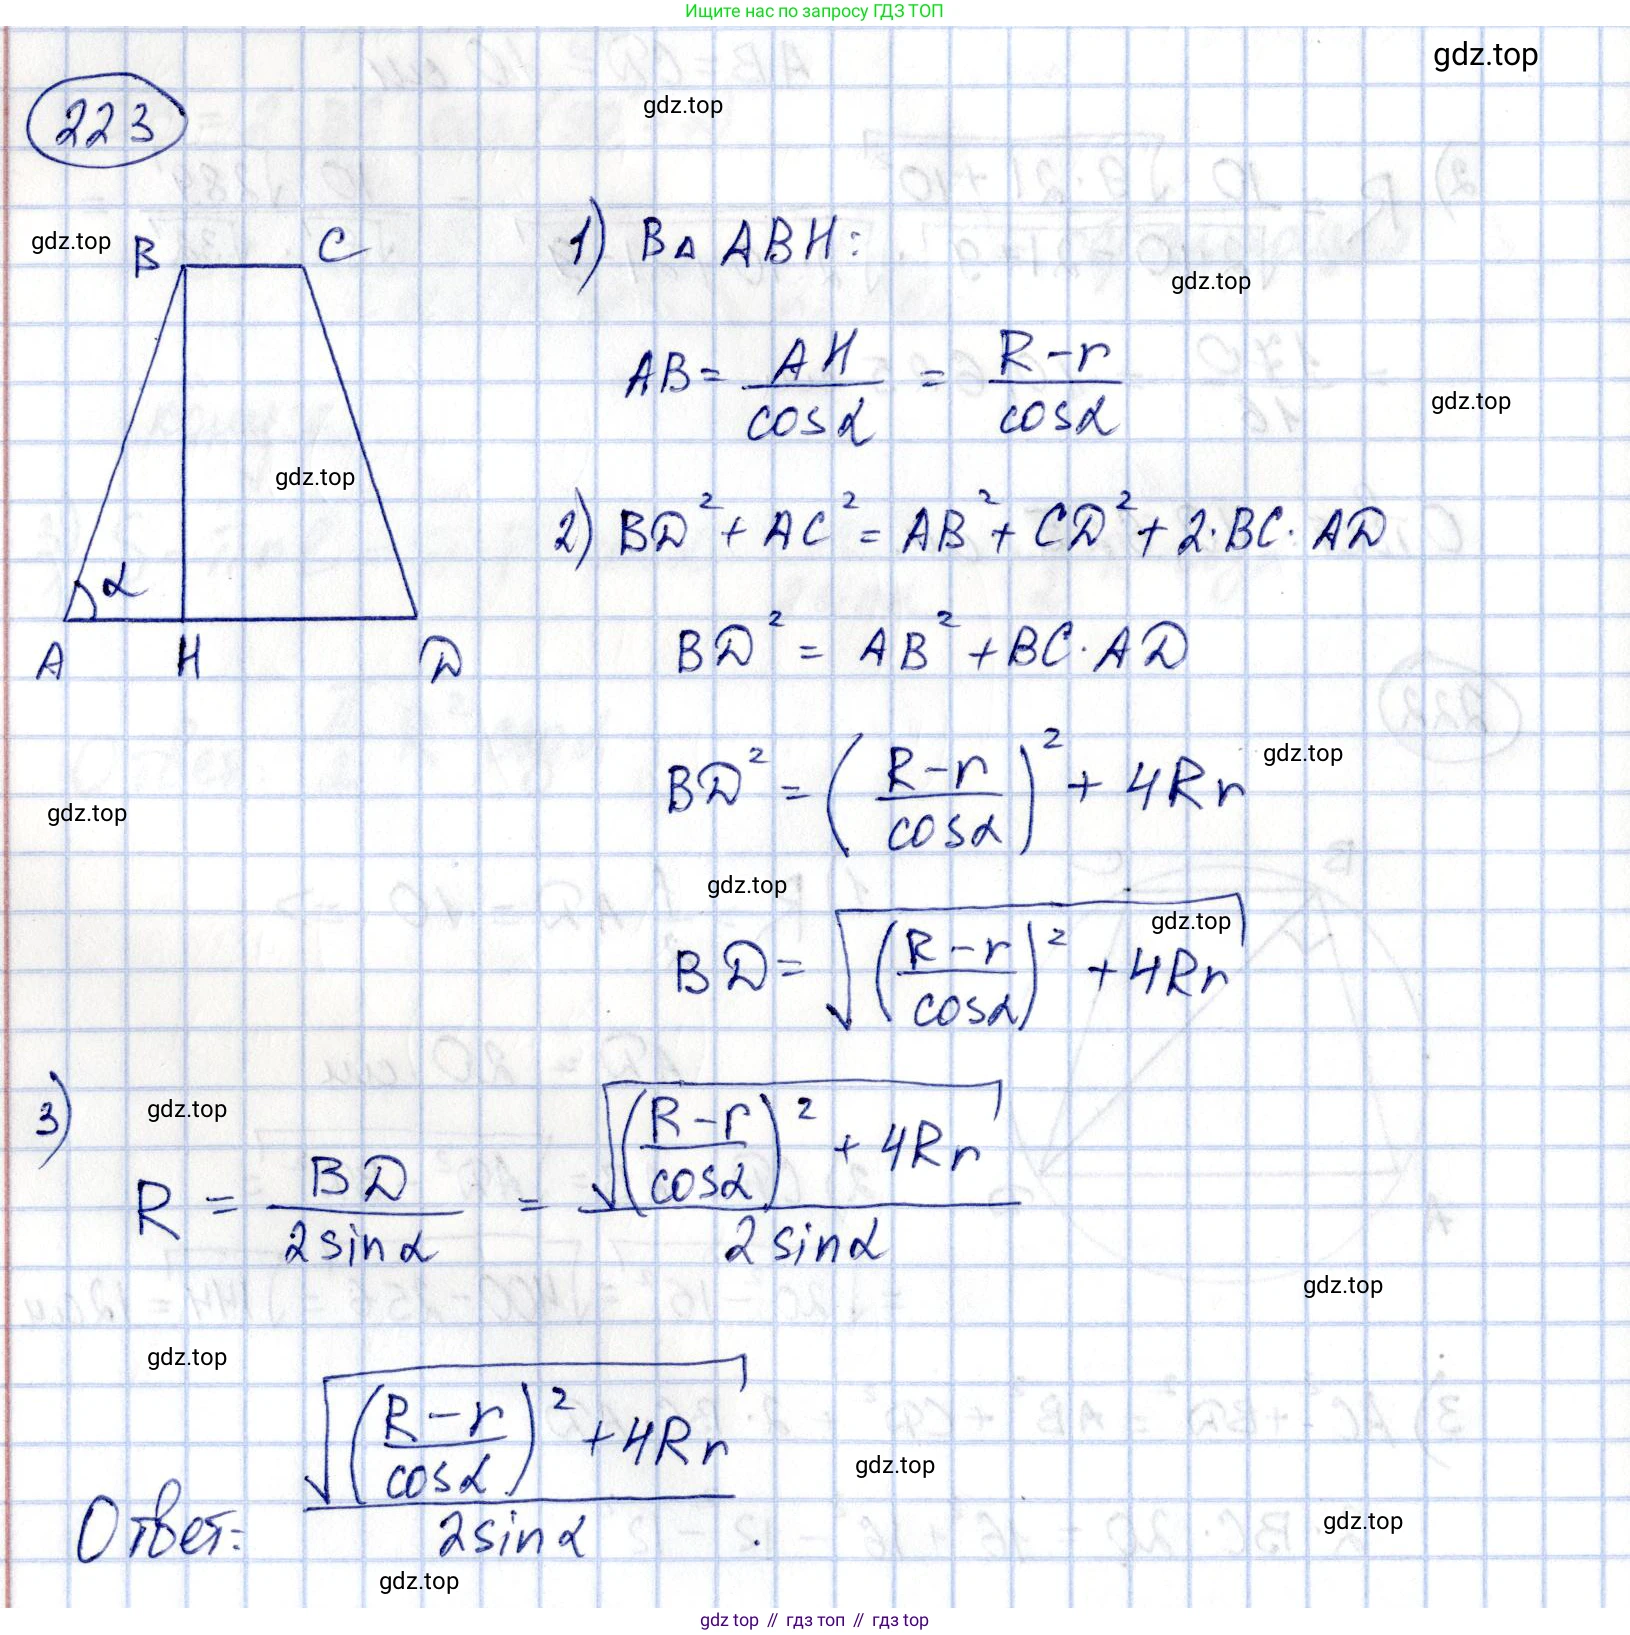 Ищите нас по запросу ГДЗ ТОП
gdz.top
223
gdz.top
gdz.top
B C
1) В△ ABH:
gdz.top
AB = AH / cosα = R-r / cosα
gdz.top
gdz.top
2) BD² + AC² = AB² + CD² + 2·BC·AD
α
A H D
BD² = AB² + BC·AD
gdz.top
BD² = (R-r / cosα)² + 4Rr
gdz.top
gdz.top
gdz.top
BD = √((R-r / cosα)² + 4Rr)
3)
gdz.top
R = BD / 2sinα = √((R-r / cosα)² + 4Rr) / 2sinα
gdz.top
gdz.top
Ответ: √((R-r / cosα)² + 4Rr) / 2sinα .
gdz.top
gdz.top
gdz.top
gdz.top // гдз топ // гдз top